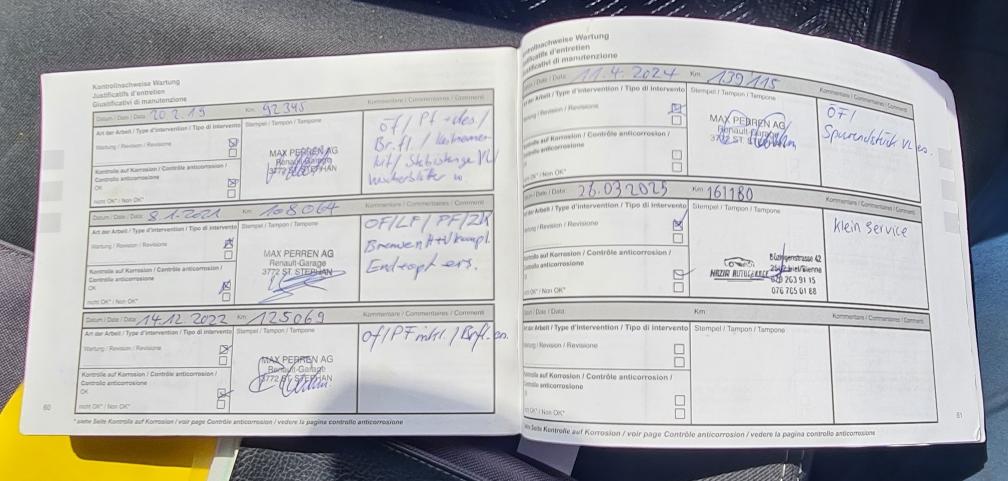 Kontrollnachweise Wartung
Justificatifs d'entretien
Giustificativi di manutenzione
Datum / Date / Data 20.2.19 Km 92345 Kommentare / Commentaires / Commenti
Art der Arbeit / Type d'intervention / Tipo di intervento Stempel / Tampon / Tampone
Wartung / Revision / Revisione
Kontrolle auf Korrosion / Contrôle anticorrosion /
Controllo anticorrosione
OK
nicht OK* / Non OK*
MAX PERREN AG
Renault-Garage
3772 ST. STEPHAN
ÖF / PF
Br.fl. /
kit / Stabistange VL /
Datum / Date / Data 8.1.2021 Km 108064 Kommentare / Commentaires / Commenti
Art der Arbeit / Type d'intervention / Tipo di intervento Stempel / Tampon / Tampone
Wartung / Revision / Revisione
Kontrolle auf Korrosion / Contrôle anticorrosion /
Controllo anticorrosione
OK
nicht OK* / Non OK*
MAX PERREN AG
Renault-Garage
3772 ST. STEPHAN
ÖF/LF/PF/ZK
Bremsen H+V kompl.
Endtopf ers.
Datum / Date / Data 14.12.2022 Km 125069 Kommentare / Commentaires / Commenti
Art der Arbeit / Type d'intervention / Tipo di intervento Stempel / Tampon / Tampone
Wartung / Revision / Revisione
Kontrolle auf Korrosion / Contrôle anticorrosion /
Controllo anticorrosione
OK
nicht OK* / Non OK*
MAX PERREN AG
Renault-Garage
3772 ST. STEPHAN
ÖF/PF / Brfl. ers.
60
* siehe Seite Kontrolle auf Korrosion / voir page Contrôle anticorrosion / vedere la pagina controllo anticorrosione
Kontrollnachweise Wartung
d'entretien
di manutenzione
/ Date / Data 11.4.2024 Km 139115 Kommentare / Commentaires / Commenti
der Arbeit / Type d'intervention / Tipo di intervento Stempel / Tampon / Tampone
/ Revision / Revisione
auf Korrosion / Contrôle anticorrosion /
anticorrosione
OK* / Non OK*
MAX PERREN AG
Renault-Garage
3772 ST. STEPHAN
ÖF /
Spurendstück VL ers.
/ Date / Data 26.03.2025 Km 161180 Kommentare / Commentaires / Commenti
der Arbeit / Type d'intervention / Tipo di intervento Stempel / Tampon / Tampone
/ Revision / Revisione
auf Korrosion / Contrôle anticorrosion /
anticorrosione
OK* / Non OK*
NAZIR AUTOGARAGE
42
Biel/Bienne
263 91 15
076 765 01 88
klein service
/ Date / Data Km Kommentare / Commentaires / Commenti
der Arbeit / Type d'intervention / Tipo di intervento Stempel / Tampon / Tampone
/ Revision / Revisione
auf Korrosion / Contrôle anticorrosion /
anticorrosione
OK* / Non OK*
61
Seite Kontrolle auf Korrosion / voir page Contrôle anticorrosion / vedere la pagina controllo anticorrosione